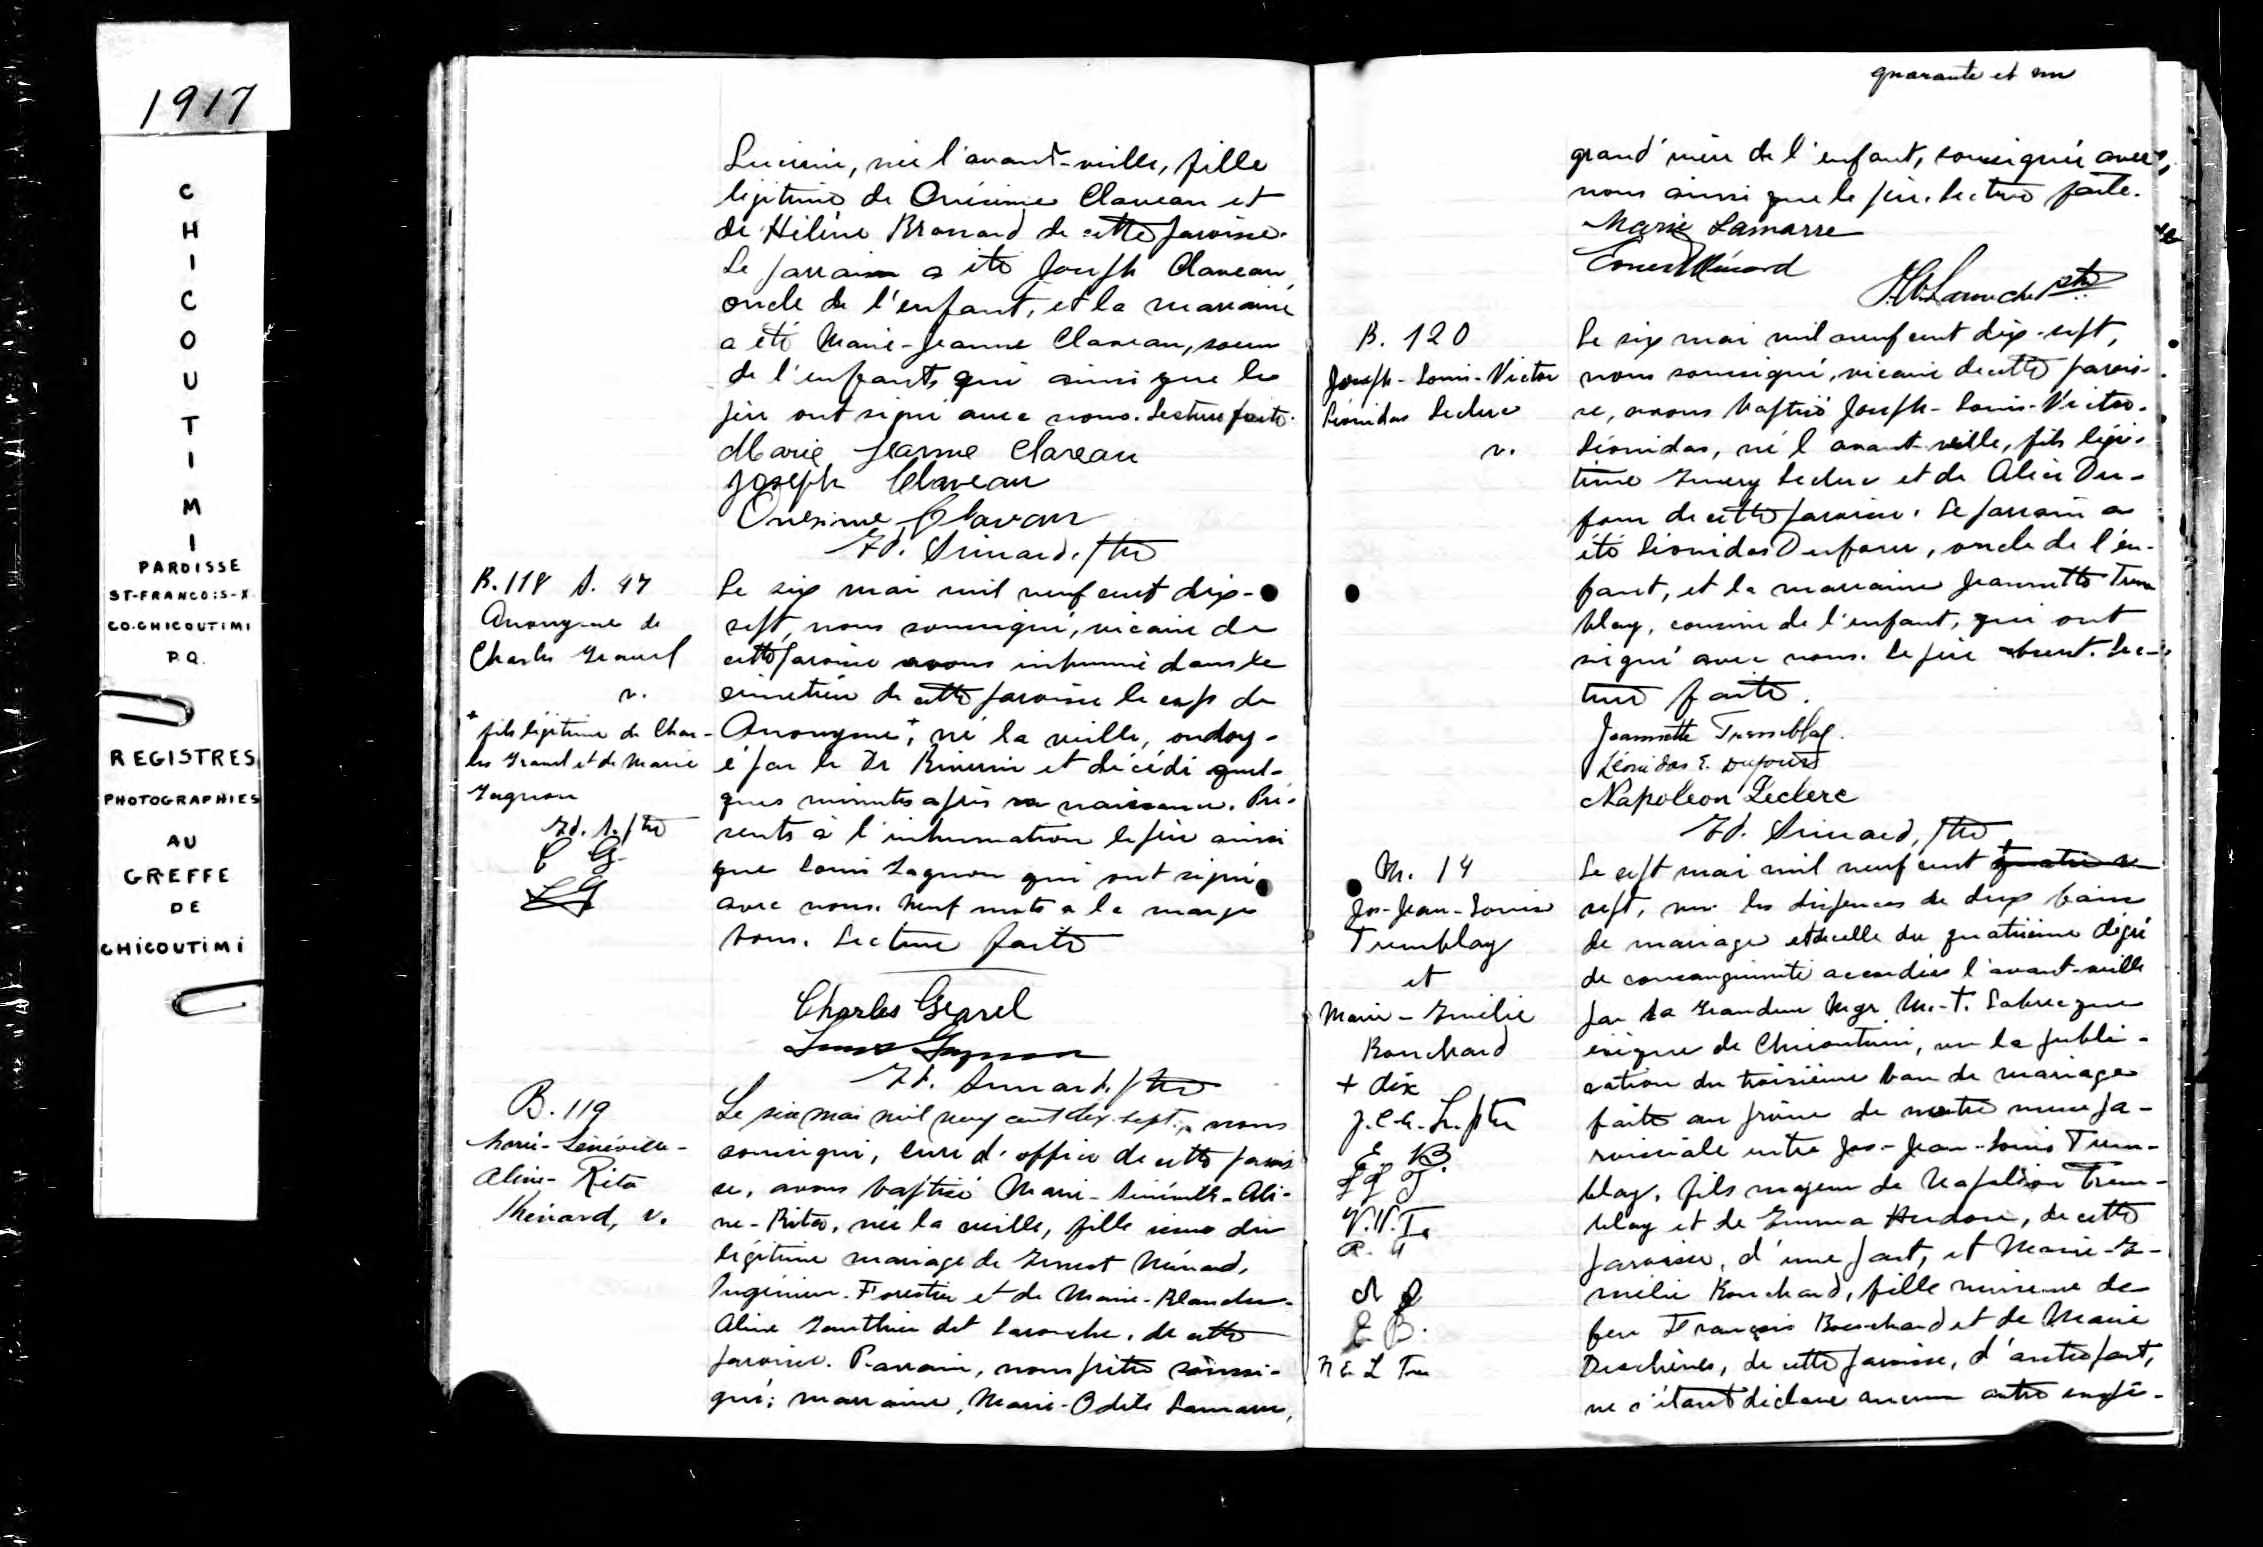 1917
CHICOUTIMI
PAROISSE
ST-FRANCOIS-X
CO. CHICOUTIMI
P.Q.
REGISTRES
PHOTOGRAPHIES
AU
GREFFE
DE
CHICOUTIMI
née l'avant-veille, fille
légitime de Onésime Claveau et
de Hélène Brassard de cette paroisse.
Le parrain a été Joseph Claveau
oncle de l'enfant, et la marraine
a été Marie-Jeanne Claveau, soeur
de l'enfant, qui ainsi que le
père ont signé avec nous. Lecture faite.
Marie Jeanne Claveau
Joseph Claveau
Onesime Clavau
Ed. Simard, ptre
B. 118 S. 47
Anonyme de
Charles Gravel
v.
+ fils légitime de Char-
les Gravel et de Marie
Gagnon
Ed. S. ptre
C G
L G
Le six mai mil neuf cent dix-
sept, nous soussigné, vicaire de
cette paroisse avons inhumé dans le
cimetière de cette paroisse le corps de
Anonyme,+ né la veille, ondoy-
é par le Dr et décédé quel-
ques minutes après sa naissance. Pré-
sents à l'inhumation le père ainsi
que Louis Gagnon qui ont signé
avec nous. Neuf mots à la marge
bons. Lecture faite
Charles Gravel
Louis Gagnon
Ed. Simard, ptre
B. 119
Marie-Sénéville-
Aline-Rita
Ménard, v.
Le six mai mil neuf cent dix-sept, nous
soussigné, curé d'office de cette parois
se, avons baptisé Marie-Sénéville-Ali-
ne-Rita, née la veille, fille issue du
légitime mariage de Ernest Ménard,
Ingénieur-Forestier et de Marie-Blanche-
Aline Gauthier dit Larouche, de cette
paroisse. Parrain, nous prêtre soussi-
gné; marraine, Marie-Odile Lamarre,
quarante et un
grand'mère de l'enfant, soussignée avec
nous ainsi que le père. Lecture faite.
Marie Lamarre
Ernest Ménard
Larouche ptre
B. 120
Joseph-Louis-Victor
Léonidas Leclerc
v.
Le six mai mil neuf cent dix-sept,
nous soussigné, vicaire de cette parois-
se, avons baptisé Joseph-Louis-Victor-
Léonidas, né l'avant veille, fils légi-
time Emery Leclerc et de Alice Du-
four de cette paroisse. Le parrain a
été Léonidas Dufour, oncle de l'en-
fant, et la marraine Jeannette Trem
blay, cousine de l'enfant, qui ont
signé avec nous. Le père absent. Lec-
ture faite.
Jeannette Tremblay.
Léonidas E. Dufour
Napoléon Leclerc
Ed. Simard, ptre
M. 14
Jos-Jean-Louis
Tremblay
et
Marie-Emilie
Bouchard
+ dix
E. B.
V.N.T.
E B.
Le sept mai mil neuf cent
sept, vu les dispenses de deux bans
de mariage et de celle du quatrième degré
de consanguinité accordées l'avant-veille
par Sa Grandeur Mgr M.-T. Labrecque
évêque de Chicoutimi, vu la publi-
cation du troisième ban de mariage
faite au prône de notre messe pa-
roissiale entre Jos-Jean-Louis Trem-
blay, fils majeur de Napoléon Trem-
blay et de Emma Hudon, de cette
paroisse, d'une part, et Marie-E-
milie Bouchard, fille mineure de
feu François Bouchard et de Marie
Deschênes, de cette paroisse, d'autre part,
ne s'étant déclaré aucun autre empê-